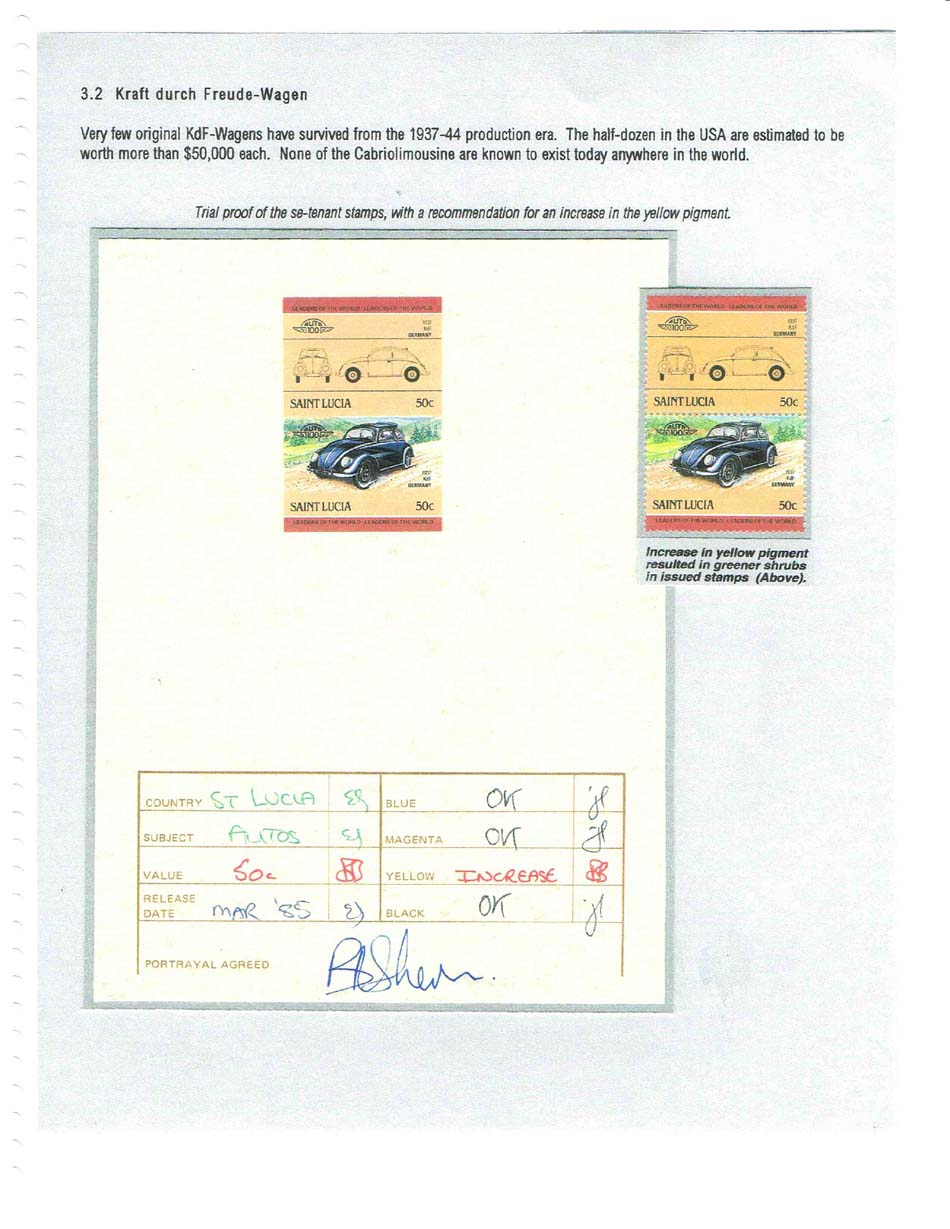 3.2 Kraft durch Freude-Wagen
Very few original KdF-Wagens have survived from the 1937-44 production era. The half-dozen in the USA are estimated to be
worth more than $50,000 each. None of the Cabriolimousine are known to exist today anywhere in the world.
Trial proof of the se-tenant stamps, with a recommendation for an increase in the yellow pigment.
LEADERS OF THE WORLD LEADERS OF THE WORLD
AUTO
100
1937
KdF
GERMANY
SAINT LUCIA 50c
AUTO
100
1937
KdF
GERMANY
SAINT LUCIA 50c
LEADERS OF THE WORLD LEADERS OF THE WORLD
LEADERS OF THE WORLD LEADERS OF THE WORLD
AUTO
100
1937
KdF
GERMANY
SAINT LUCIA 50c
AUTO
100
1937
KdF
GERMANY
SAINT LUCIA 50c
LEADERS OF THE WORLD LEADERS OF THE WORLD
Increase in yellow pigment
resulted in greener shrubs
in issued stamps (Above).
COUNTRY ST LUCIA BLUE OK
SUBJECT AUTOS MAGENTA OK
VALUE 50c YELLOW INCREASE
RELEASE
DATE MAR '85 BLACK OK
PORTRAYAL AGREED